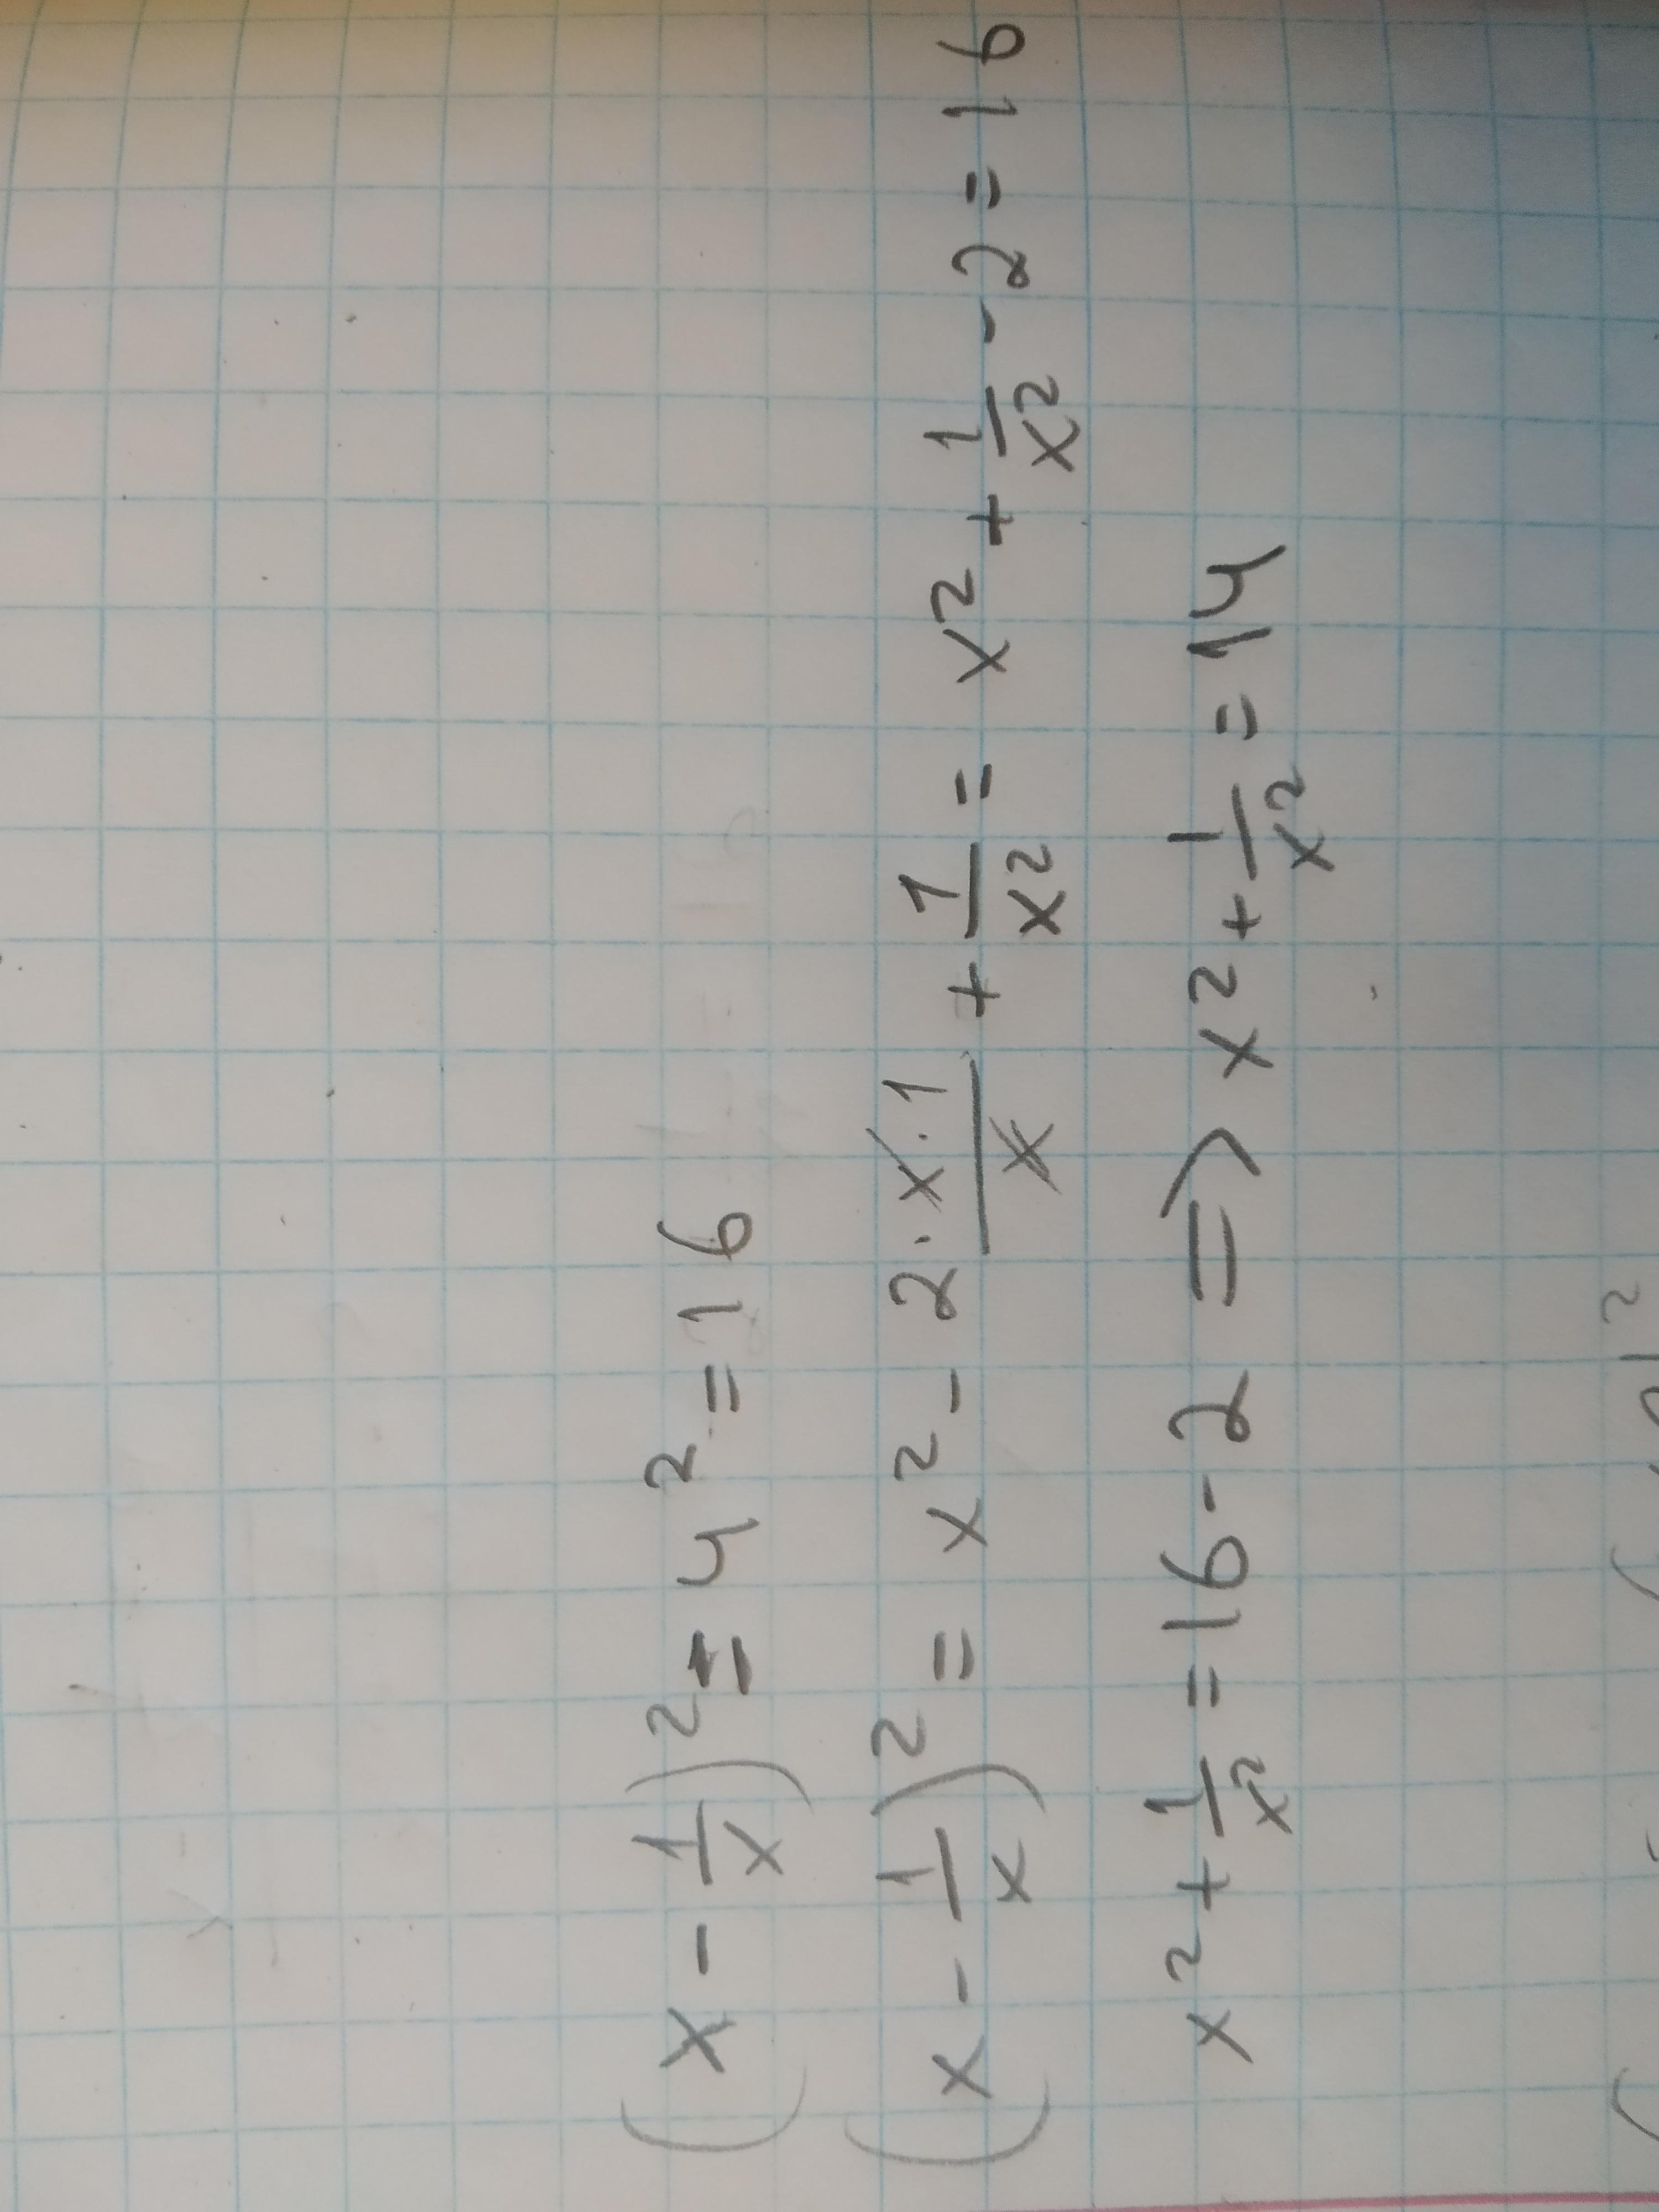 (x - 1/x)² = 4² = 16
(x - 1/x)² = x² - 2·x·1/x + 1/x² = x² + 1/x² - 2 = 16
x² + 1/x² = 16 - 2 => x² + 1/x² = 14